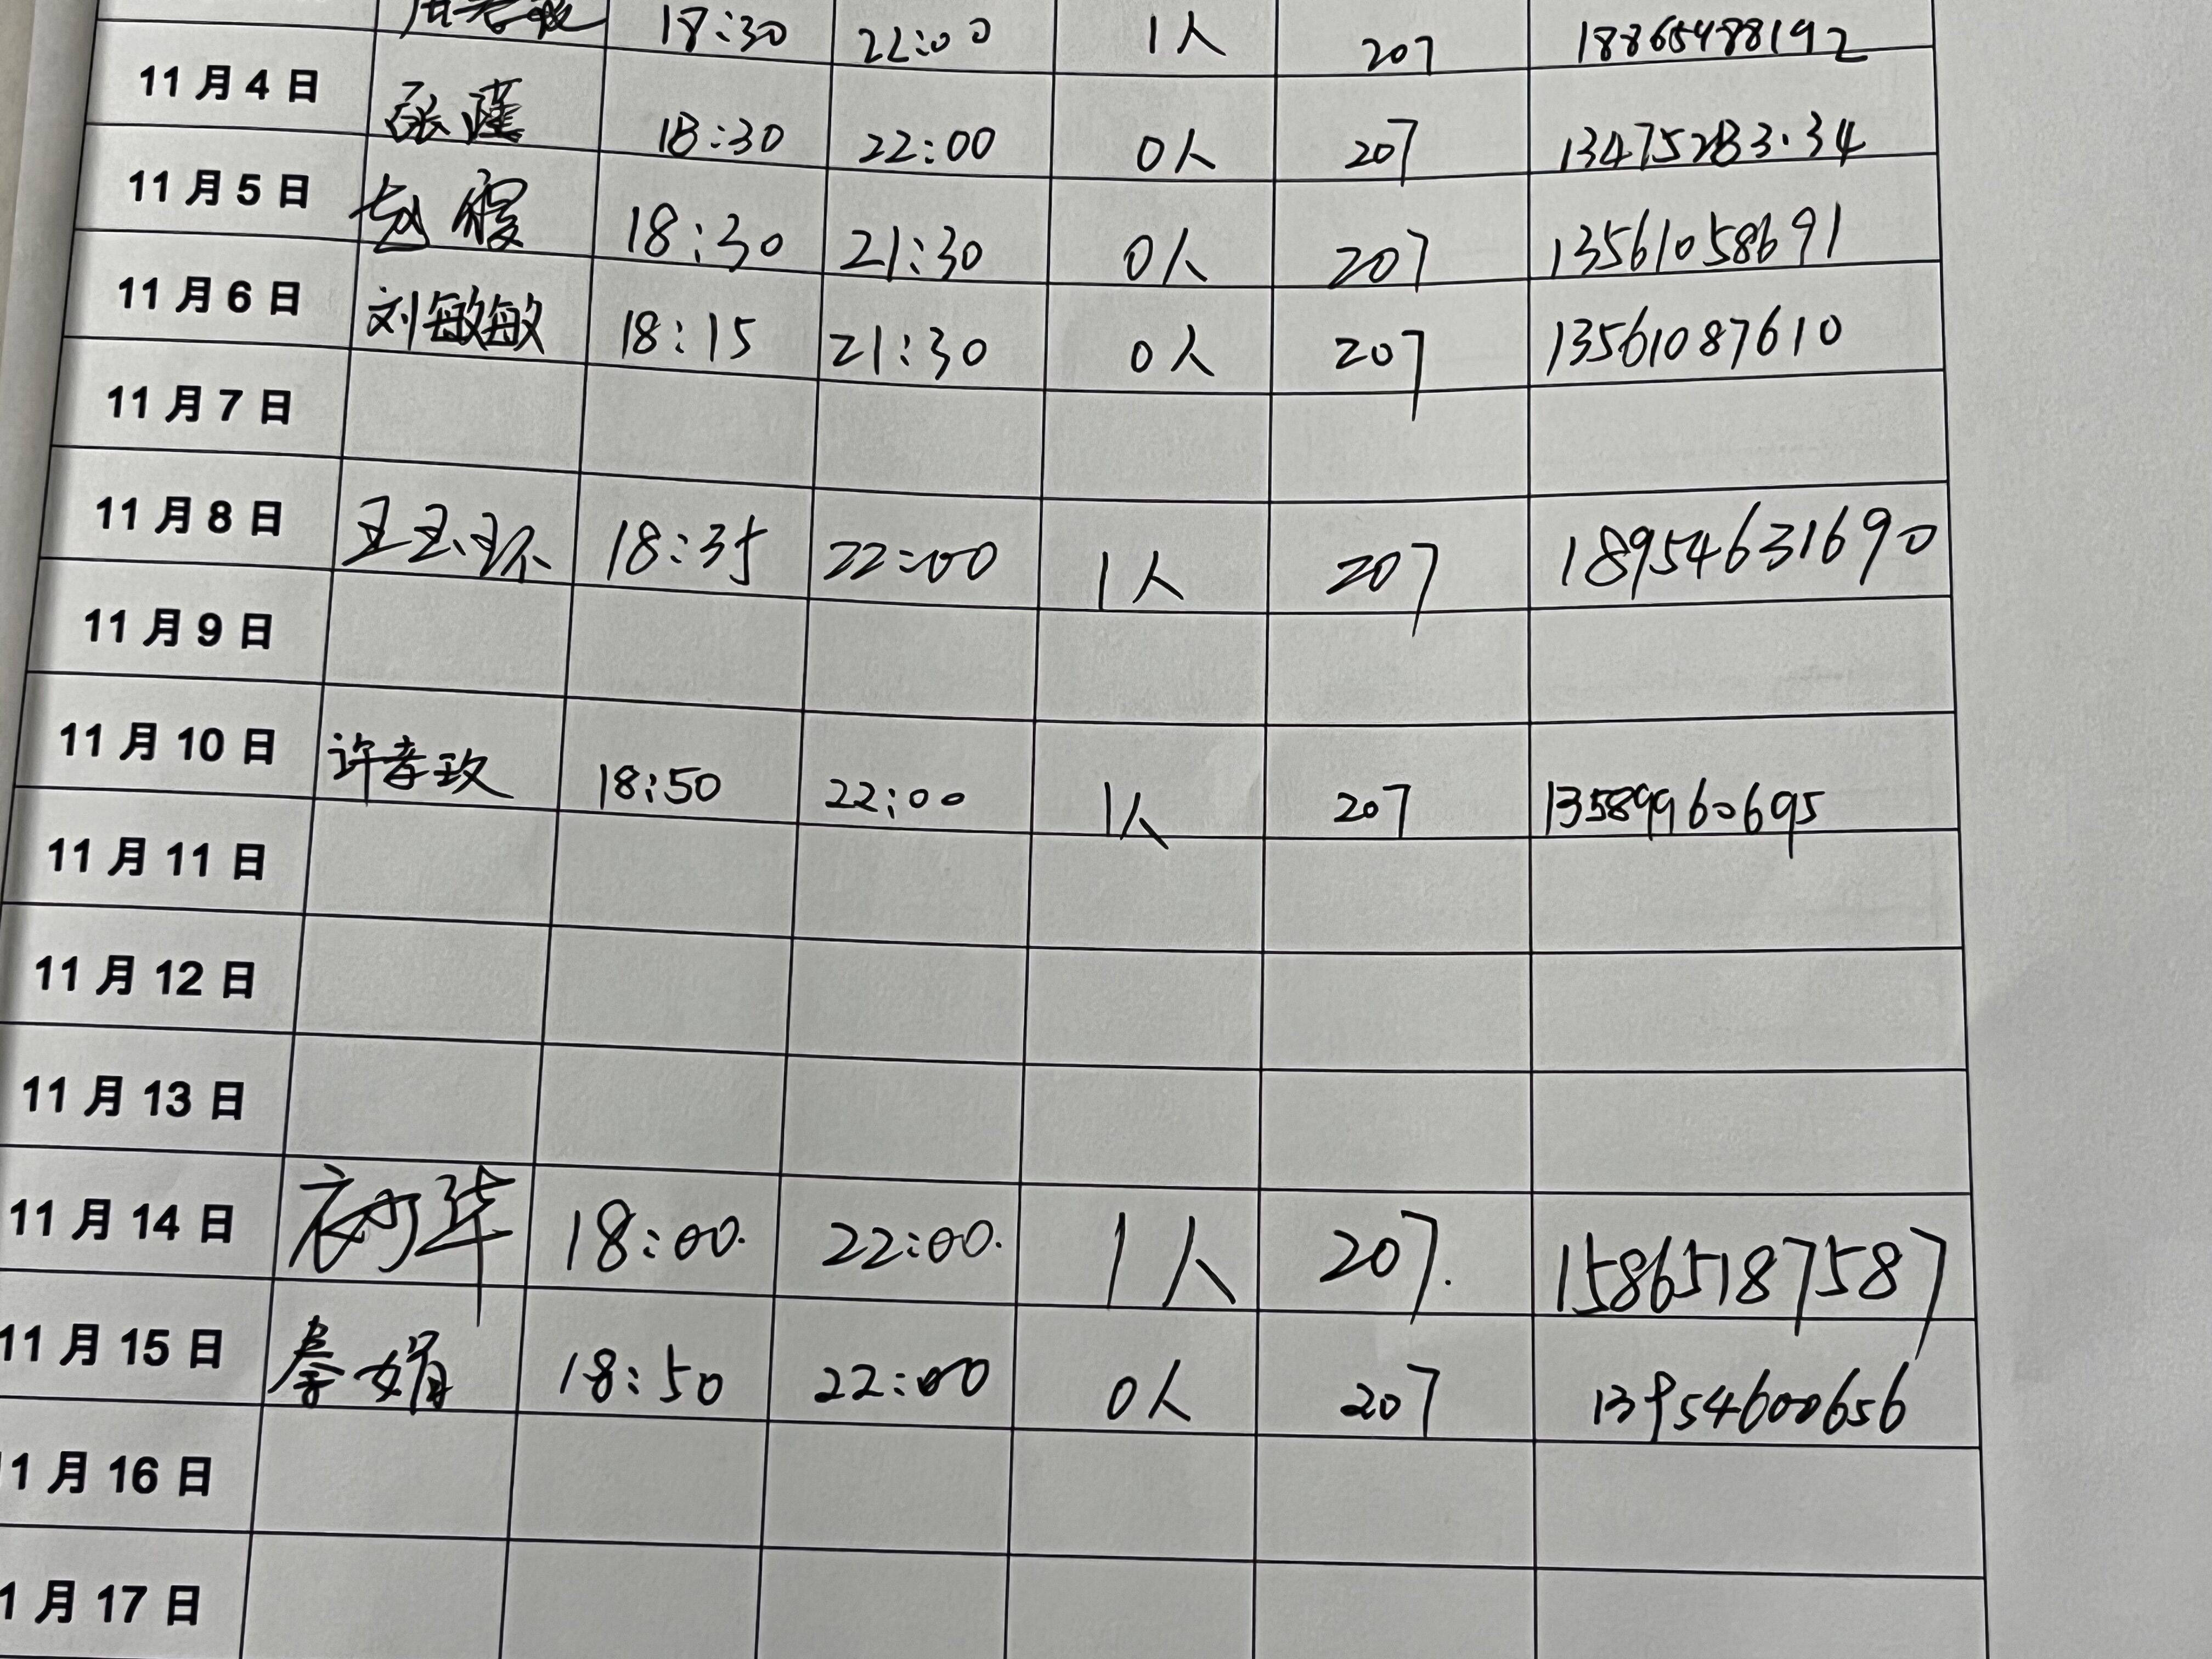 18:30 22:00 1人 207 18865488192
11月4日 张瑾 18:30 22:00 0人 207 13475283.34
11月5日 赵霞 18:30 21:30 0人 207 13561058691
11月6日 刘敏敏 18:15 21:30 0人 207 13561087610
11月7日
11月8日 王玉环 18:35 22:00 1人 207 18954631690
11月9日
11月10日 许孝玫 18:50 22:00 1人 207 13589960695
11月11日
11月12日
11月13日
11月14日 18:00. 22:00. 1人 207. 15865187587
11月15日 秦娟 18:50 22:00 0人 207 13954600656
1月16日
1月17日